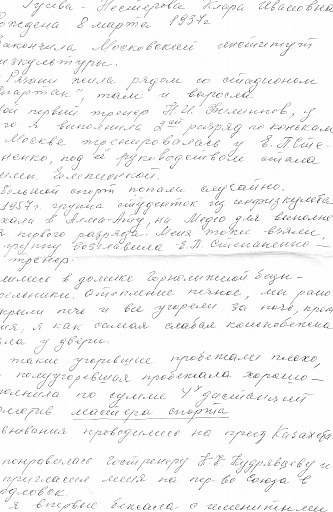 Гусева - Нестерова Клара Ивановна
рождена 8 марта 1937г
Закончила Московский институт
физкультуры.
Рязани жила рядом со стадионом
"Спартак", там и выросла.
Мой первый тренер Н.И.
я выполнила 2ой разряд по конькам
Москве тренировалась у Е.П. Сте-
ненко, под её руководством стала
Большой спорт попала случайно.
1957г. группа студенток
в Алма-Ату, на Медео для выполне-
я первого разряда. Меня тоже взяли,
группу возглавила Е.П. Степаненко —
тренер.
лились в домике Горнолыжной
Отопление печное, мы рано
крыли печь и все угорели за ночь,
я, как самая слабая конькобежка
ала у двери.
такие угоревшие пробежали плохо,
полуугоревшая пробежала хорошо —
полнила по сумме 4х дистанций
мастера спорта
внования проводились на приз Казахстана
понравилась Гостренеру Кудрявцеву и
пригласил меня на пер-во Союза в
рдловск.
я впервые бежала с именитыми